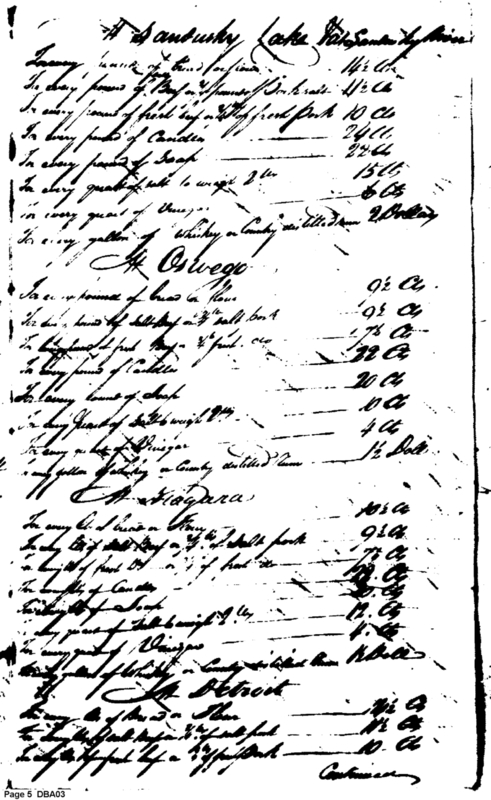 At Sandusky Lake Sandusky River
For every pound of bread or flour 14½ Cts
For every pound of Beef or ¾ pound Pork salt 11½ Cts
For every pound of fresh beef or ¾ lb of fresh Pork 10 Cts
For every pound of Candles 24 Cts
For every pound of Soap 22 Cts
For every quart of salt to weigh 2 lbs 15 Cts
For every quart of Vinegar 6 Cts
For every gallon of Whiskey or Country distilled rum 2 Dollars
At Oswego
For every pound of bread or flour 9½ Cts
For every pound of salt Beef or ¾ lb salt pork 9½ Cts
For every pound of fresh Beef or ¾ fresh do 7½ Cts
For every pound of Candles 22 Cts
For every pound of Soap 20 Cts
For every Quart of Salt to weigh 2 lbs 10 Cts
For every quart of Vinegar 4 Cts
For every gallon of whiskey or Country distilled rum 1½ Doll
At Niagara
For every lb of bread or flour 10½ Cts
For every lb of Salt Beef or ¾ lb of Salt pork 9½ Cts
For every lb of fresh do or ¾ of fresh do 7½ Cts
For every lb of Candles
For every lb of Soap 20 Cts
For every quart of Salt to weigh 2 lbs 12 Cts
For every quart of Vinegar 4 Cts
For every gallon of Whiskey or Country distilled Rum Doll
At Detroit
For every lb of Bread or Flour Cts
For every lb of salt Beef or ¾ lb of salt pork 11½ Cts
For every lb of fresh beef or ¾ lb of fresh Pork 10 Cts
Continued
Page 5 DBA03